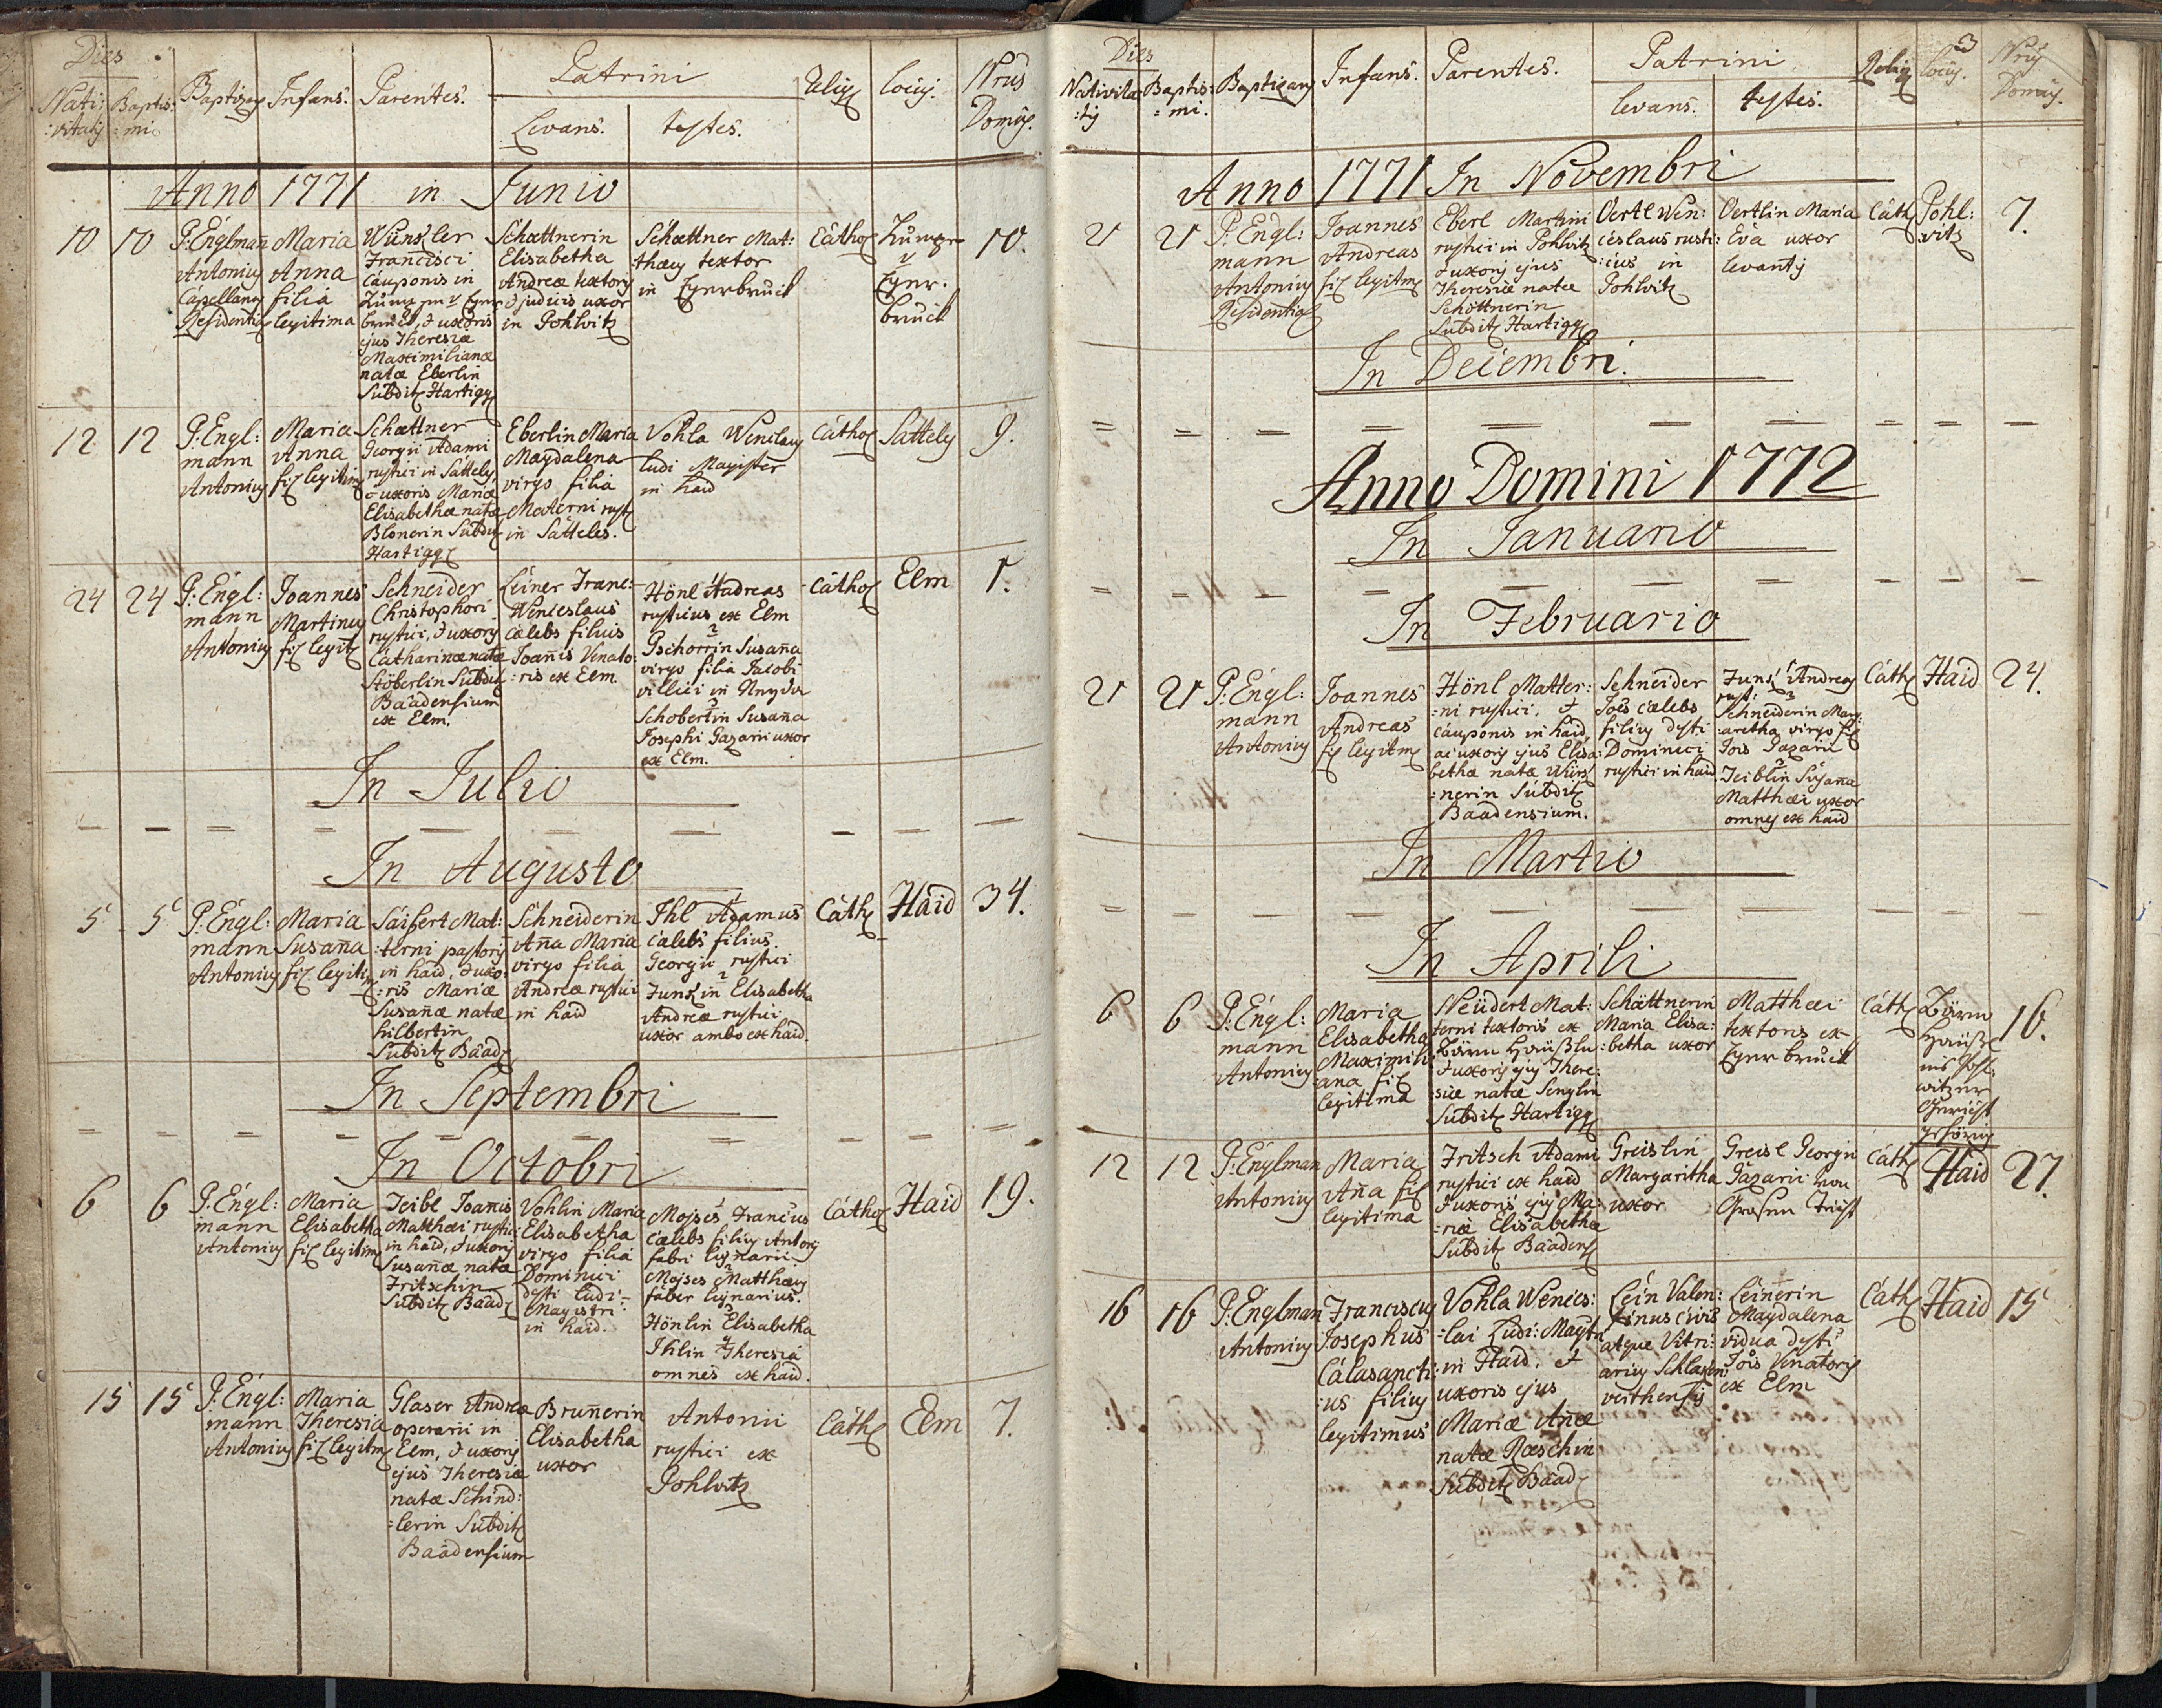 Dies
Nati:
:vitatis
Baptis:
:mi
Baptizans
Infans.
Parentes.
Patrini
Levans.
testes.
Relig
locus.
Nrus
Domus.
Anno 1771 in Junio
10
10
P: Englmañ
Antonius
Capellanus
Residentis
Maria
Anna
filia
legitima
Francisci
cauponis in
bruck, & uxoris
ejus Theresiæ
Maximilianæ
natæ Eberlin
Subdit Hartigg
Schættnerin
Elisabetha
Andreæ textoris
& judicis uxor
in Pohlvitz
Schættner Mat:
thæus textor
in Egerbruck
Cathol
Eger.
bruck
10.
12
12
P: Engl:
mann
Antonius
Maria
Anna
fil legitim
Schættner
Georgii Adami
rustici in Satteles,
& uxoris Mariæ
Elisabethæ natæ
Blonerin Subdit
Hartigg
Eberlin Maria
Magdalena
virgo filia
Materni rust
in Satteles.
Vohla Wenclaus
ludi Magister
in haid
Cathol
Satteles
9.
24
24
P: Engl:
mann
Antonius
Joannes
Martinus
fil legit
Schneider
Christophori
rustici, & uxoris
Catharinæ natæ
Stöberlin Subdit
Baadensium
ex Elm.
Leiner Franc:
Wenceslaus
cælebs filius
Joañis Venato:
:ris ex Elm.
Hönl Andreas
rusticus ex Elm
2
Pschorrin Susaña
virgo filia Jacobi
villici in
3
Schobertin Susaña
Josephi Gazarii uxor
ex Elm.
Cathol
Elm
1.
In Julio
In Augusto
5
5
P: Engl:
mann
Antonius
Maria
Susaña
fil legitim
Saifert Mat:
:terni pastoris
in haid, & uxo:
:ris Mariæ
Susañæ natæ
hilbertin
Subdit Baad
Schneiderin
Aña Maria
virgo filia
Andreæ rustici
in haid
1
Ihl Adamus
cælebs filius
Georgii rustici
2
Junkin Elisabetha
Andreæ rustici
uxor ambo ex haid.
Cath
Haid
34.
In Septembri
In Octobri
6
6
P: Engl:
mann
Antonius
Maria
Elisabetha
fil legitim
Teibl Joañis
Matthæi rustici
in haid, & uxoris
Susañæ natæ
Fritschin
Subdit Baad
Vohlin Maria
Elisabetha
virgo filia
Dominici
dfti ludi:
Magistri
in haid.
1
Mojses Francus
cælebs filius Antonii
fabri lignarii
2
Mojses Matthæus
faber lignarius.
3
Hönlin Elisabetha
4
Ihlin Theresia
omnes ex haid.
Cathol
Haid
19.
15
15
P: Engl:
mann
Antonius
Maria
Theresia
fil legitm
Glaser Andreæ
operarii in
Elm, & uxoris
ejus Theresiæ
natæ Schind:
:lerin Subdit
Baadensium
Bruñerin
Elisabetha
uxor
Antonii
rustici ex
Pohlvitz
Cath
Elm
7.
3
Dies
Nativita:
:tis
Baptis:
:mi.
Baptizans
Infans.
Parentes.
Patrini
levans.
testes.
Relig
locus.
Nrus
Domus.
Anno 1771 In Novembri
21
21
P: Engl:
mann
Antonius
Residentis
Joannes
Andreas
fil legitm
Eberl Martini
rustici in Pohlvitz
& uxoris ejus
Theresiæ natæ
Schöttnerin
Subdit Hartigg
Oertl Wen:
ceslaus rusti:
:cus in
Pohlvitz
Oertlin Maria
Eva uxor
levantis
Cath
Pohl:
vitz
7.
In Decembri.
Anno Domini 1772
In Januario
In Februario
21
21
P: Engl:
mann
Antonius
Joannes
Andreas
fil legitm
Hönl Matter:
:ni rustici, &
cauponis in haid,
ac uxoris ejus Elisa:
bethæ natæ
:nerin Subdit
Baadensium.
Schneider
Jois cælebs
filius dfti
Dominici
rustici in haid
1
Junk Andreas
rust:
2
Schneiderin Marg:
:aretha virgo fil
Jois Gazarii
3
Teiblin Susaña
Matthæi uxor
omnes ex haid
Cath
Haid
24.
In Martio
In Aprili
6
6
P: Engl:
mann
Antonius
Maria
Elisabetha
Maximili:
:ana fil
legitima
Neüdert Mat:
terni textoris ex
& uxoris ejus There:
:siæ natæ Senglin
Subdit Hartigg
Schättnerin
Maria Elisa:
:betha uxor
Matthæi
textoris ex
Egerbruck
Cath
witzer
Gericht
gehörig
16.
12
12
P: Englman
Antonius
Maria
Aña fil
legitima
Fritsch Adami
rustici ex haid
& uxoris ejus Ma:
:riæ Elisabethæ
Subdit Baadens
Greislin
Margaritha
uxor
Greisl Georgii
Gazarii von
Cath
Haid
27.
16
16
P: Englman
Antonius
Franciscus
Josephus
Calasancti:
:us filius
legitimus
Vohla Wences:
:lai Ludi: Magtri
in Haid, &
uxoris ejus
Mariæ Añæ
natæ Ræschin
Subdit Baad
Lein Valen:
tinus civis
atque Vitri:
arius Schlaken:
verthensis
Leinerin
Magdalena
vidua dfti
Jois Venatoris
ex Elm
Cath
Haid
15